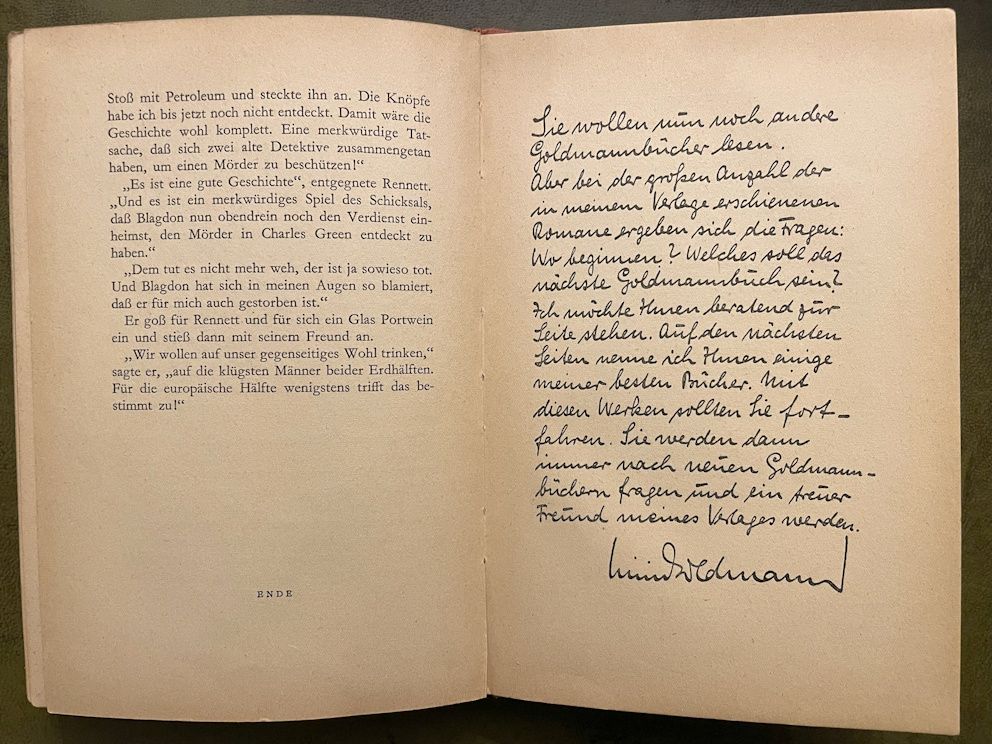 Stoß mit Petroleum und steckte ihn an. Die Knöpfe
habe ich bis jetzt noch nicht entdeckt. Damit wäre die
Geschichte wohl komplett. Eine merkwürdige Tat-
sache, daß sich zwei alte Detektive zusammengetan
haben, um einen Mörder zu beschützen!“
„Es ist eine gute Geschichte“, entgegnete Rennett.
„Und es ist ein merkwürdiges Spiel des Schicksals,
daß Blagdon nun obendrein noch den Verdienst ein-
heimst, den Mörder in Charles Green entdeckt zu
haben.“
„Dem tut es nicht mehr weh, der ist ja sowieso tot.
Und Blagdon hat sich in meinen Augen so blamiert,
daß er für mich auch gestorben ist.“
Er goß für Rennett und für sich ein Glas Portwein
ein und stieß dann mit seinem Freund an.
„Wir wollen auf unser gegenseitiges Wohl trinken,“
sagte er, „auf die klügsten Männer beider Erdhälften.
Für die europäische Hälfte wenigstens trifft das be-
stimmt zu!“
ENDE
Sie wollen nun noch andere
Goldmannbücher lesen.
Aber bei der großen Anzahl der
in meinem Verlage erschienenen
Romane ergeben sich die Fragen:
Wo beginnen? Welches soll das
nächste Goldmannbuch sein?
Ich möchte Ihnen beratend zur
Seite stehen. Auf den nächsten
Seiten nenne ich Ihnen einige
meiner besten Bücher. Mit
diesen Werken sollten Sie fort-
fahren. Sie werden dann
immer nach neuen Goldmann-
büchern fragen und ein treuer
Freund meines Verlages werden.
Goldmann